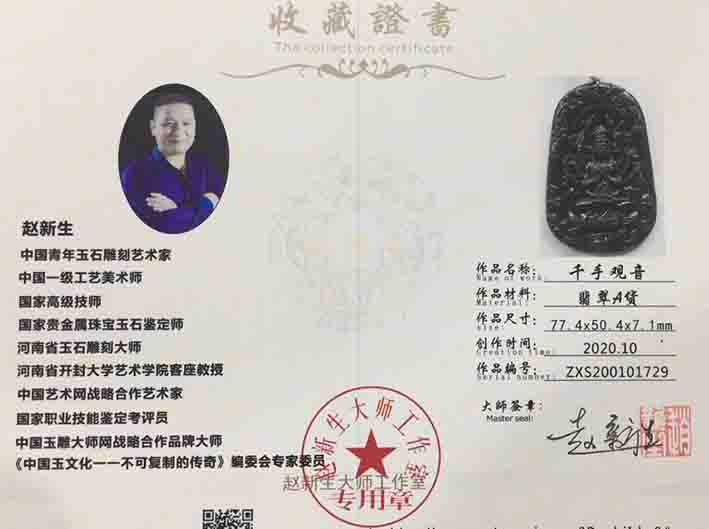 收藏證書
The collection certificate
赵新生
中国青年玉石雕刻艺术家
中国一级工艺美术师
国家高级技师
国家贵金属珠宝玉石鉴定师
河南省玉石雕刻大师
河南省开封大学艺术学院客座教授
中国艺术网战略合作艺术家
国家职业技能鉴定考评员
中国玉雕大师网战略合作品牌大师
《中国玉文化一一不可复制的传奇》编委会专家委员
作品名称: 千手观音
Name of work:
作品材料: 翡翠A货
Material:
作品尺寸: 77.4x50.4x7.1mm
size:
创作时间: 2020.10
Creation time:
作品编号: ZXS200101729
Serial number:
大师签章:
Master seal:
赵新生
赵新生大师工作室
赵新生大师工作室
专用章